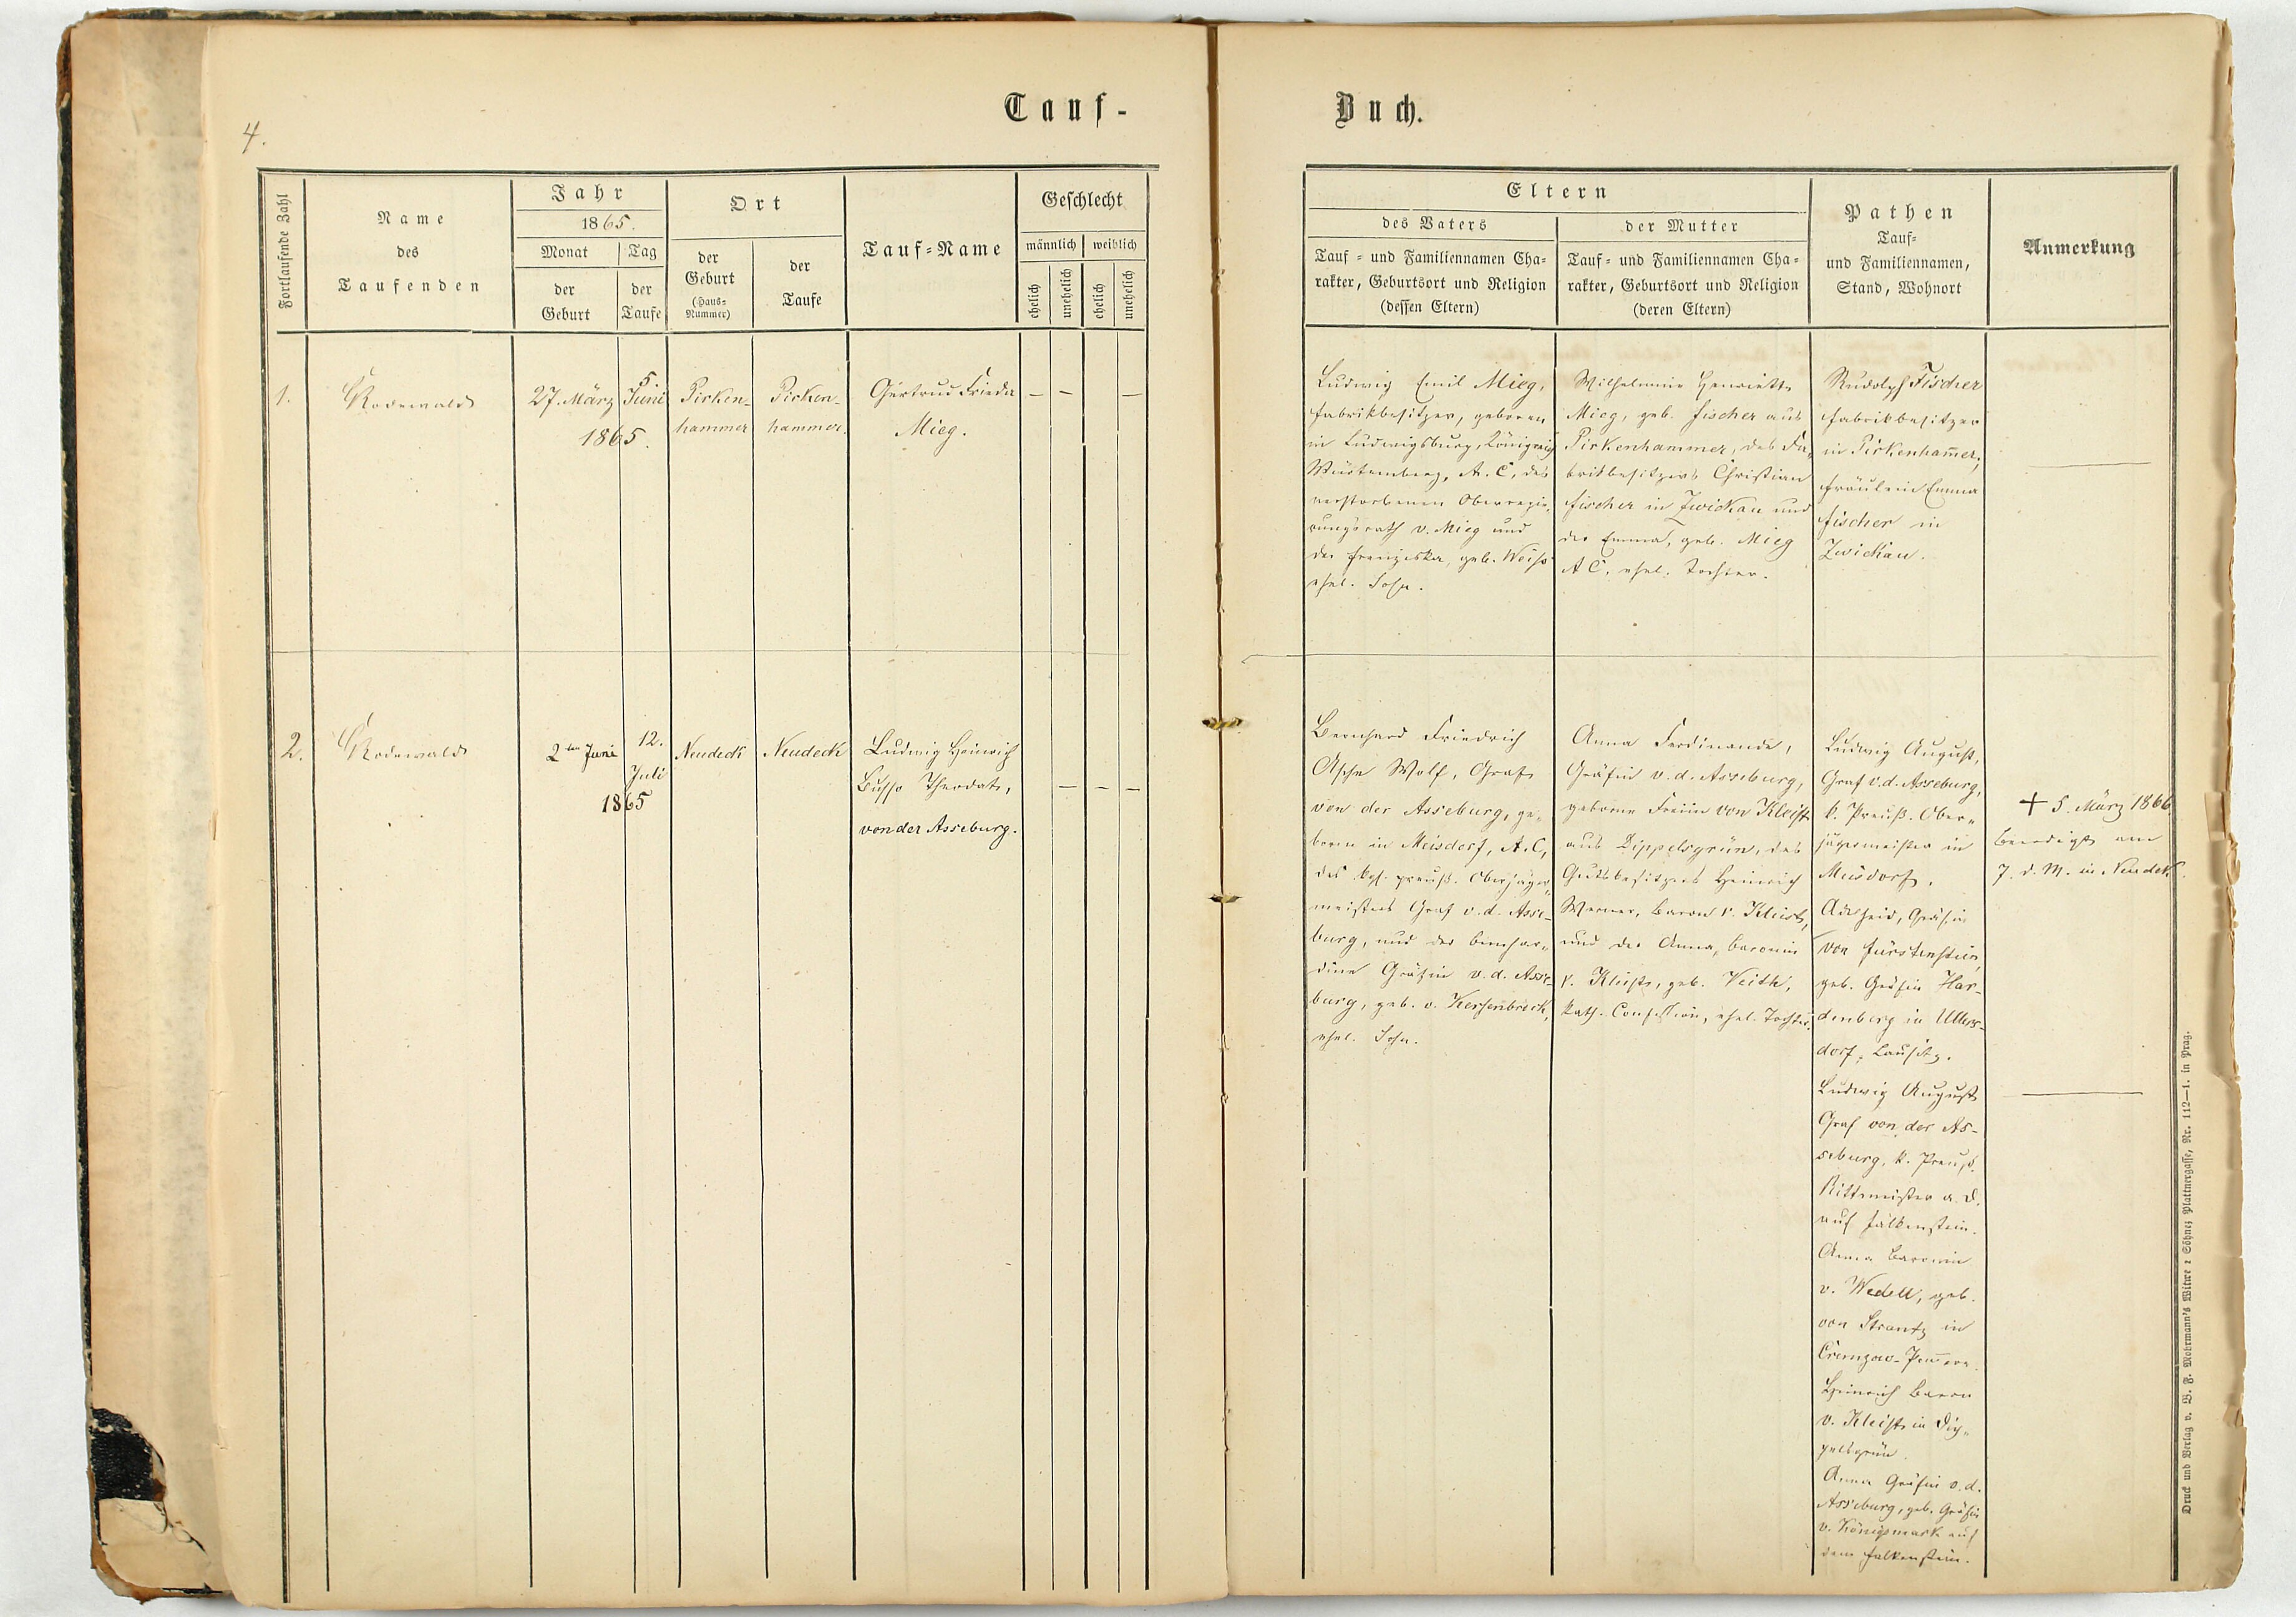 4.
Tauf-
Buch.
Fortlaufende Zahl
Name
des
Taufenden
Jahr
1865.
Monat
Tag
der
Geburt
der
Taufe
Ort
der
Geburt
(Haus-
Nummer)
der
Taufe
Tauf-Name
Geschlecht
männlich
weiblich
ehelich
unehelich
ehelich
unehelich
Eltern
des Vaters
der Mutter
Tauf- und Familiennamen Cha-
rakter, Geburtsort und Religion
(dessen Eltern)
Tauf- und Familiennamen Cha-
rakter, Geburtsort und Religion
(deren Eltern)
Pathen
Tauf-
und Familiennamen,
Stand, Wohnort
Anmerkung
1.
Rodewald
27. März
5
Juni
1865.
Pirken-
hammer
Pirken-
hammer.
Gertrud Frieda
Mieg.
– – –
Ludwig Emil Mieg,
Fabrikbesitzer, geboren
in Ludwigsburg, Königreich
Würtemberg, A. C., des
verstorbenen Oberregie-
rungsrath v. Mieg und
der Franziska, geb. Weiß
ehel. Sohn.
Wilhelmine Henriette
Mieg, geb. Fischer aus
Pirkenhammer, des Fa-
brikbesitzers Christian
Fischer in Zwickau und
der Emma, geb. Mieg
A C. ehel. Tochter.
Rudolph Fischer
Fabrikbesitzer
in Pirkenham̄er,
Fräulein Emma
Fischer in
Zwickau.
2.
Rodewald
2ten Juni
12.
Juli
1865
Neudeck
Neudeck
Ludwig Heinrich
Busso Theodat,
von der Asseburg.
– – –
Bernhard Friedrich
Asche Wolf, Graf
von der Asseburg, ge-
boren in Meisdorf, A. C,
des kgl. preuß. Oberjäger-
meisters Graf v. d. Asse-
burg, und der Bernhar-
dine Gräfin v. d. Asse-
burg, geb. v. Kerssenbrock,
ehel. Sohn.
Anna Ferdinande,
Gräfin v. d. Asseburg,
geborne Freiin von Kleist
aus Dippelsgrün, des
Gutsbesitzers Heinrich
Werner, Baron v. Kleist,
und der Anna, Baronin
v. Kleist, geb. Veith,
kath. Confession, ehel. Tochter.
Ludwig August,
Graf v. d. Asseburg,
k. Preuß. Ober-
jägermeister in
Meisdorf.
Adelheid, Gräfin
von Fürstenstein,
geb. Gräfin Har-
denberg in Ullers-
dorf, Lausitz.
Ludwig August
Graf von der As-
seburg, k. Preuß.
Rittmeister a. D.
auf Falkenstein.
Anna Baronin
v. Wedell, geb.
von Strantz in
Cremzow-Pom̄ern.
Heinrich Baron
v. Kleist in Dip-
pelsgrün.
Anna Gräfin v. d.
Asseburg, geb. Gräfin
v. Königsmark auf
dem Falkenstein.
† 5. März 1866.
beerdigt am
7. d. M. in Neudek.
Druck und Verlag v. W. F. Mohrmann's Witwe & Söhne, Plattnergasse, Nr. 112—1. in Prag.